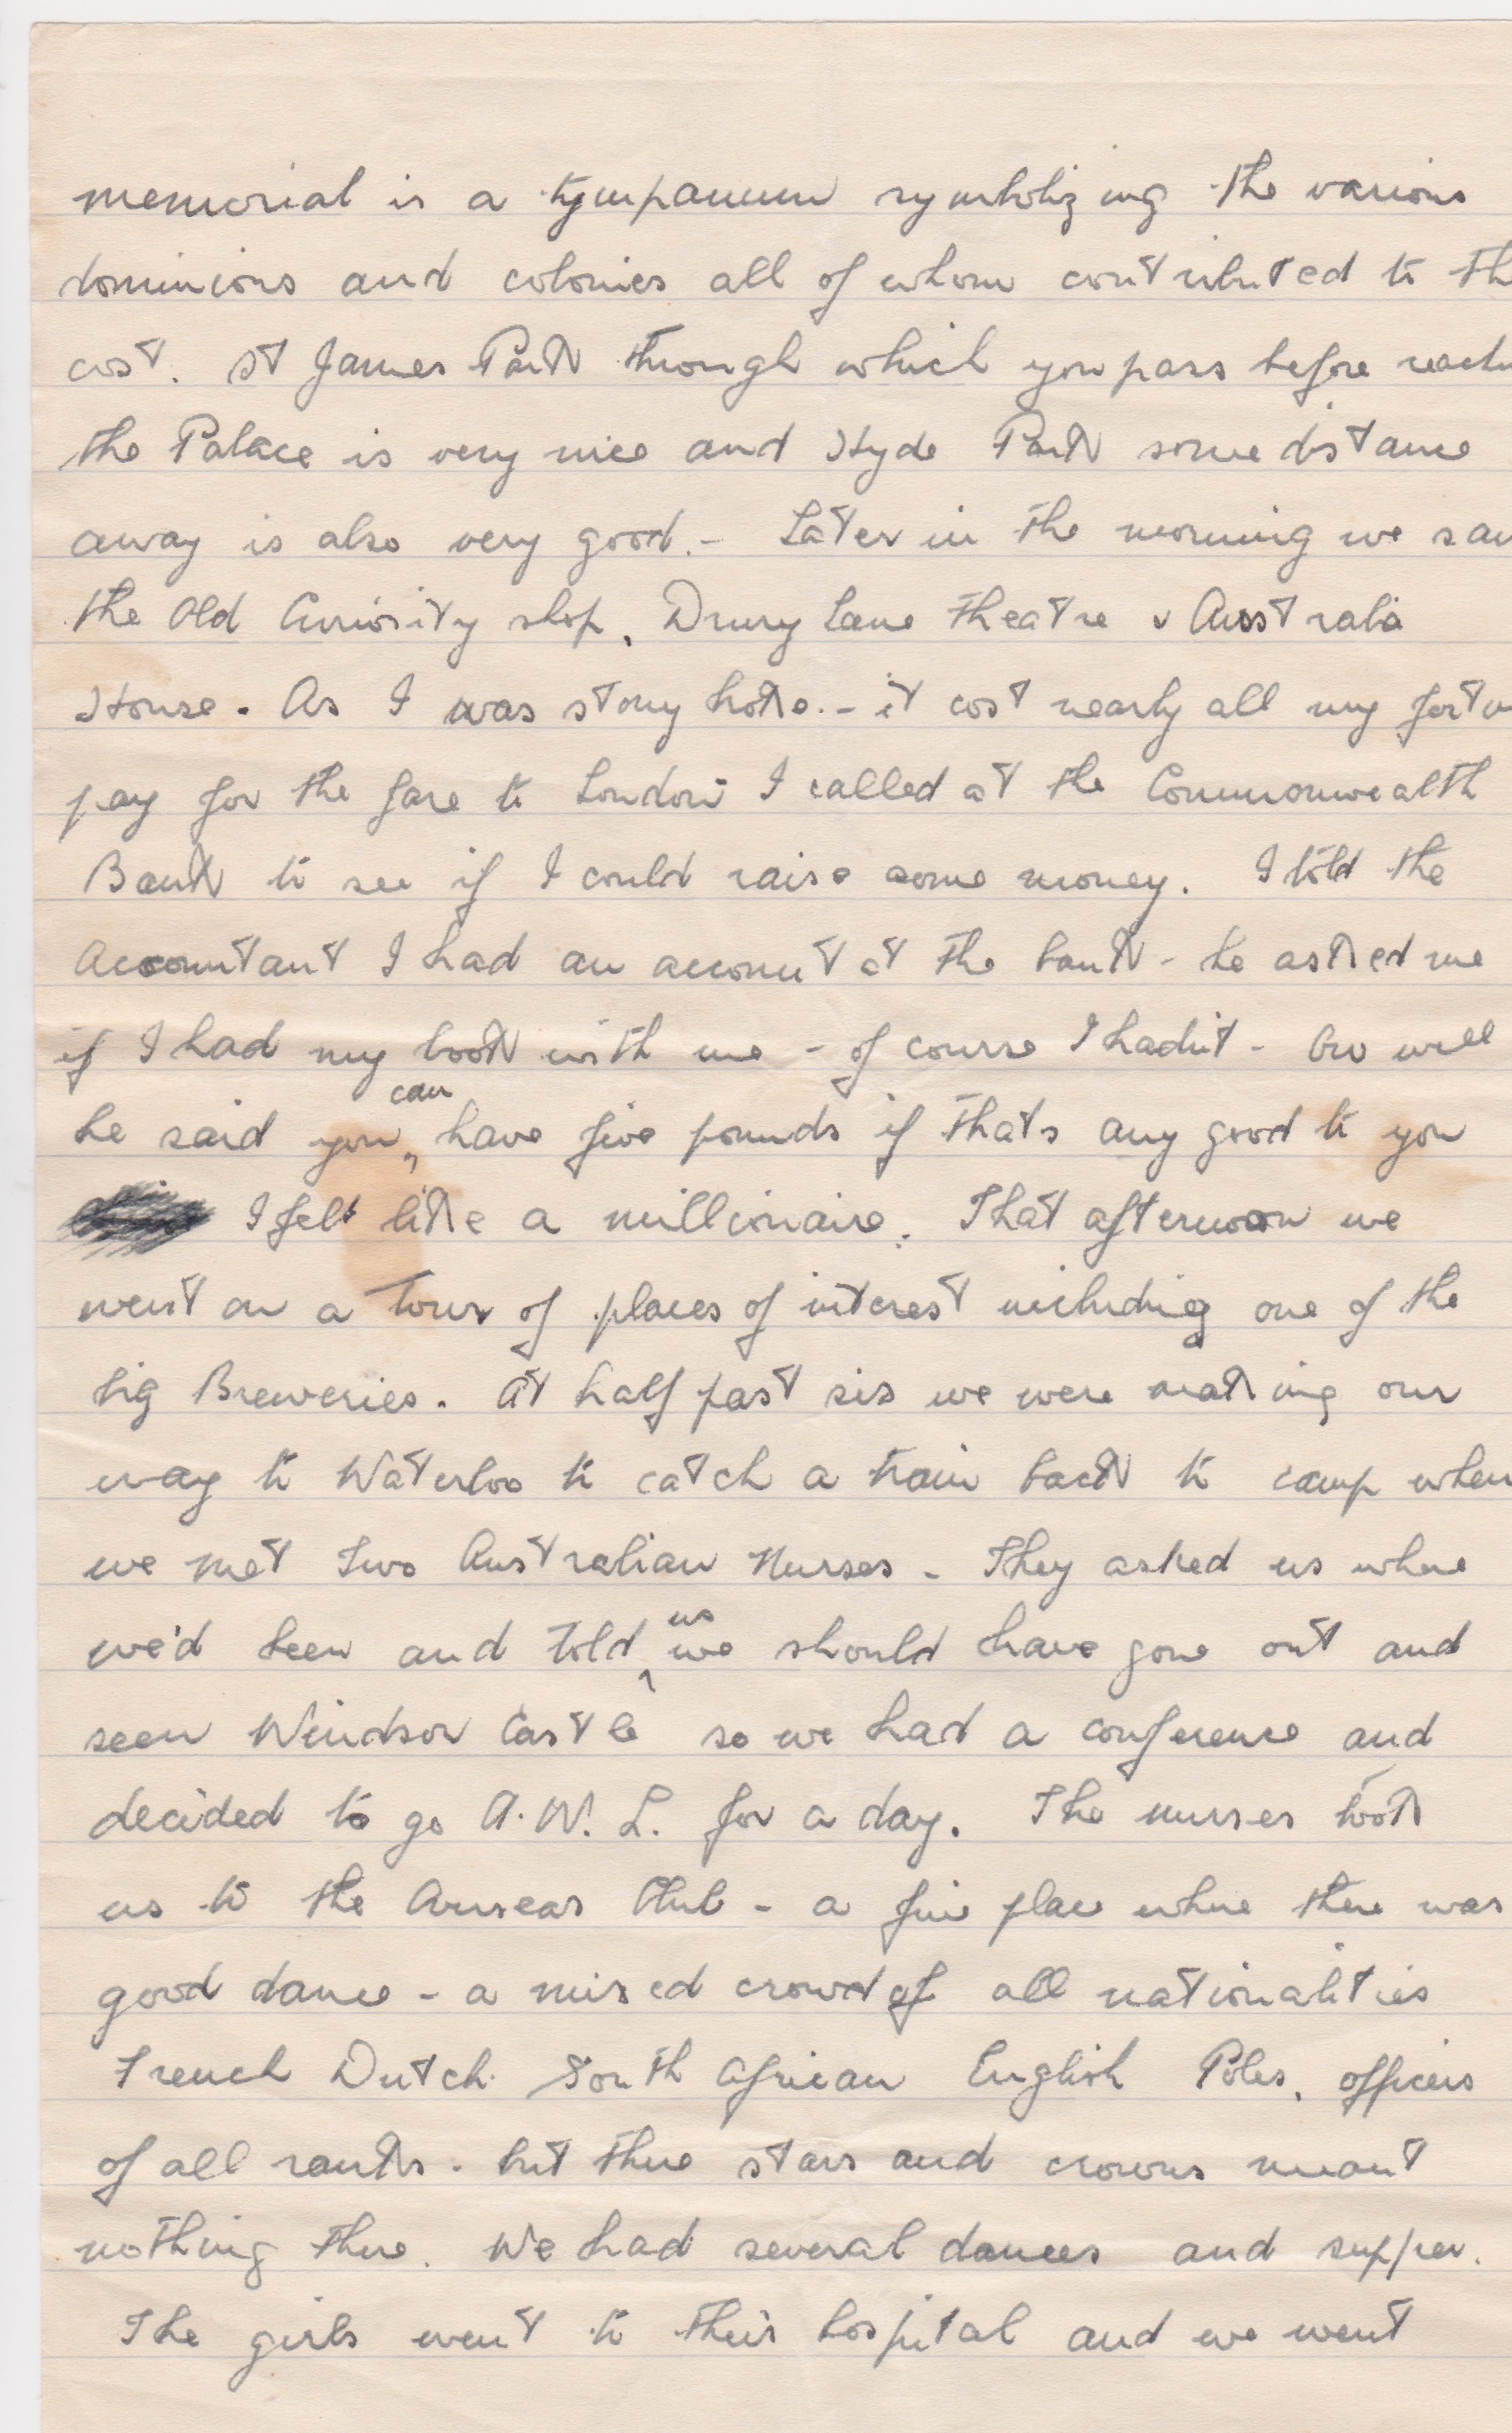 memorial is a tympanum symbolizing the various
dominions and colonies all of whom contributed to th
cost. St James Park through which you pass before reach
the Palace is very nice and Hyde Park some distance
away is also very good. - Later in the morning we saw
the Old Curiosity shop, Drury Lane Theatre & Australia
House. As I was stony broke - it cost nearly all my fortu
pay for the fare to London I called at the Commonwealth
Bank to see if I could raise some money. I told the
Accountant I had an account at the bank - he asked me
if I had my book with me - of course I hadn't - Aw well
he said you can have five pounds if thats any good to you
I felt like a millionaire. That afternoon we
went on a tour of places of interest including one of the
big Breweries. At half past six we were making our
way to Waterloo to catch a train back to camp when
we met two Australian Nurses - They asked us where
we'd been and told us we should have gone out and
seen Windsor Castle so we had a conference and
decided to go A.W.L. for a day. The nurses took
us to the Club - a fine place where there was
good dance - a mixed crowd of all nationalities
French Dutch South African English Poles, officers
of all ranks - but there stars and crowns meant
nothing there. We had several dances and supper.
The girls went to their hospital and we went